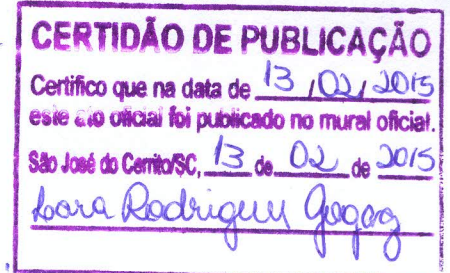 CERTIDÃO DE PUBLICAÇÃO
Certifico que na data de 13 / 02 / 2015
este ato oficial foi publicado no mural oficial.
São José do Cerrito/SC, 13 de 02 de 2015
Rodrigues